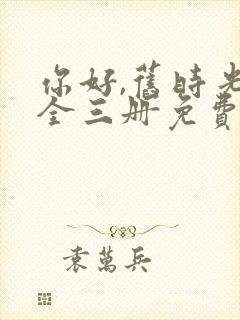 你好,舊時光
全三册免費
袁萬兵